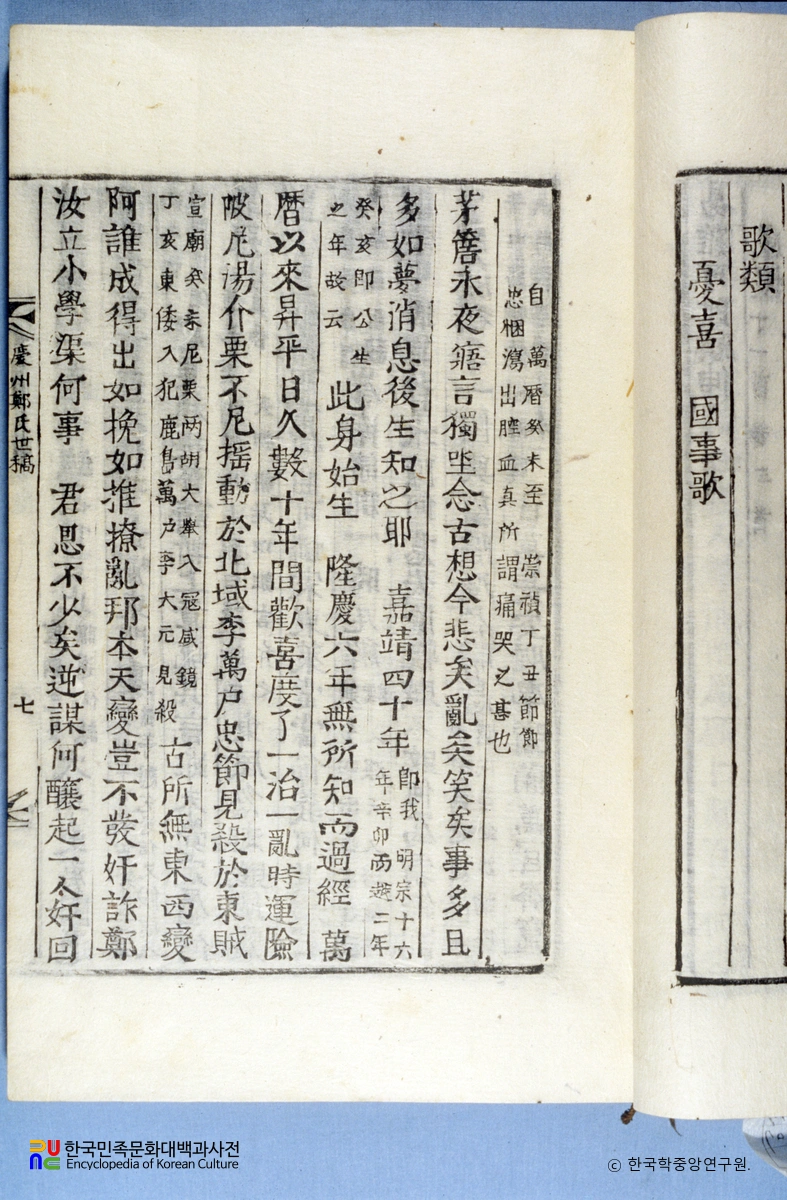 歌類
憂喜 國事歌
自萬曆癸未至 崇禎丁丑節節
忠悃瀉出腔血真所謂痛哭之甚也
茅簷永夜寤言獨坐念古想今悲矣亂矣笑矣事多且
多如夢消息後生知之耶 嘉靖四十年
即我 明宗十六
年辛卯而越二年
癸亥即公生
之年故云
此身始生 隆慶六年無所知而過經 萬
曆以來昇平日久數十年間歡喜度了一治一亂時運險
陂尼湯介栗不尼搖動於北域李萬戶忠節見殺於東賊
宣廟癸未尼栗两胡大擧入冦咸鏡
丁亥東倭入犯鹿島萬户李大元見殺
古所無東西變
阿誰成得出如挽如推撩亂邦本天變豈不發奸詐鄭
汝立小學渠何事 君思不少矣逆謀何釀起一人奸回
慶州鄭氏世稿
七
한국민족문화대백과사전
Encyclopedia of Korean Culture
© 한국학중앙연구원.